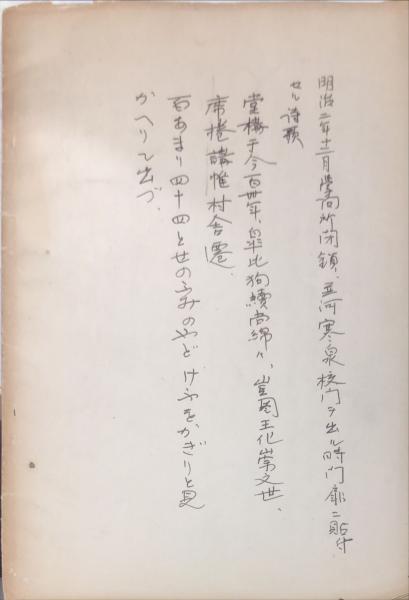 明治二年十二月学問所閉鎖、並河寒泉校門ヲ出ル時門扉ニ貼付
セル詩歌
堂構于今百卌年、皐比狗続尚綿々、豈図王化崇文世、
席捲講帷村舎遷、
百あまり四十四とせのふみのやどけふをかぎりと見
かへりて出づ、